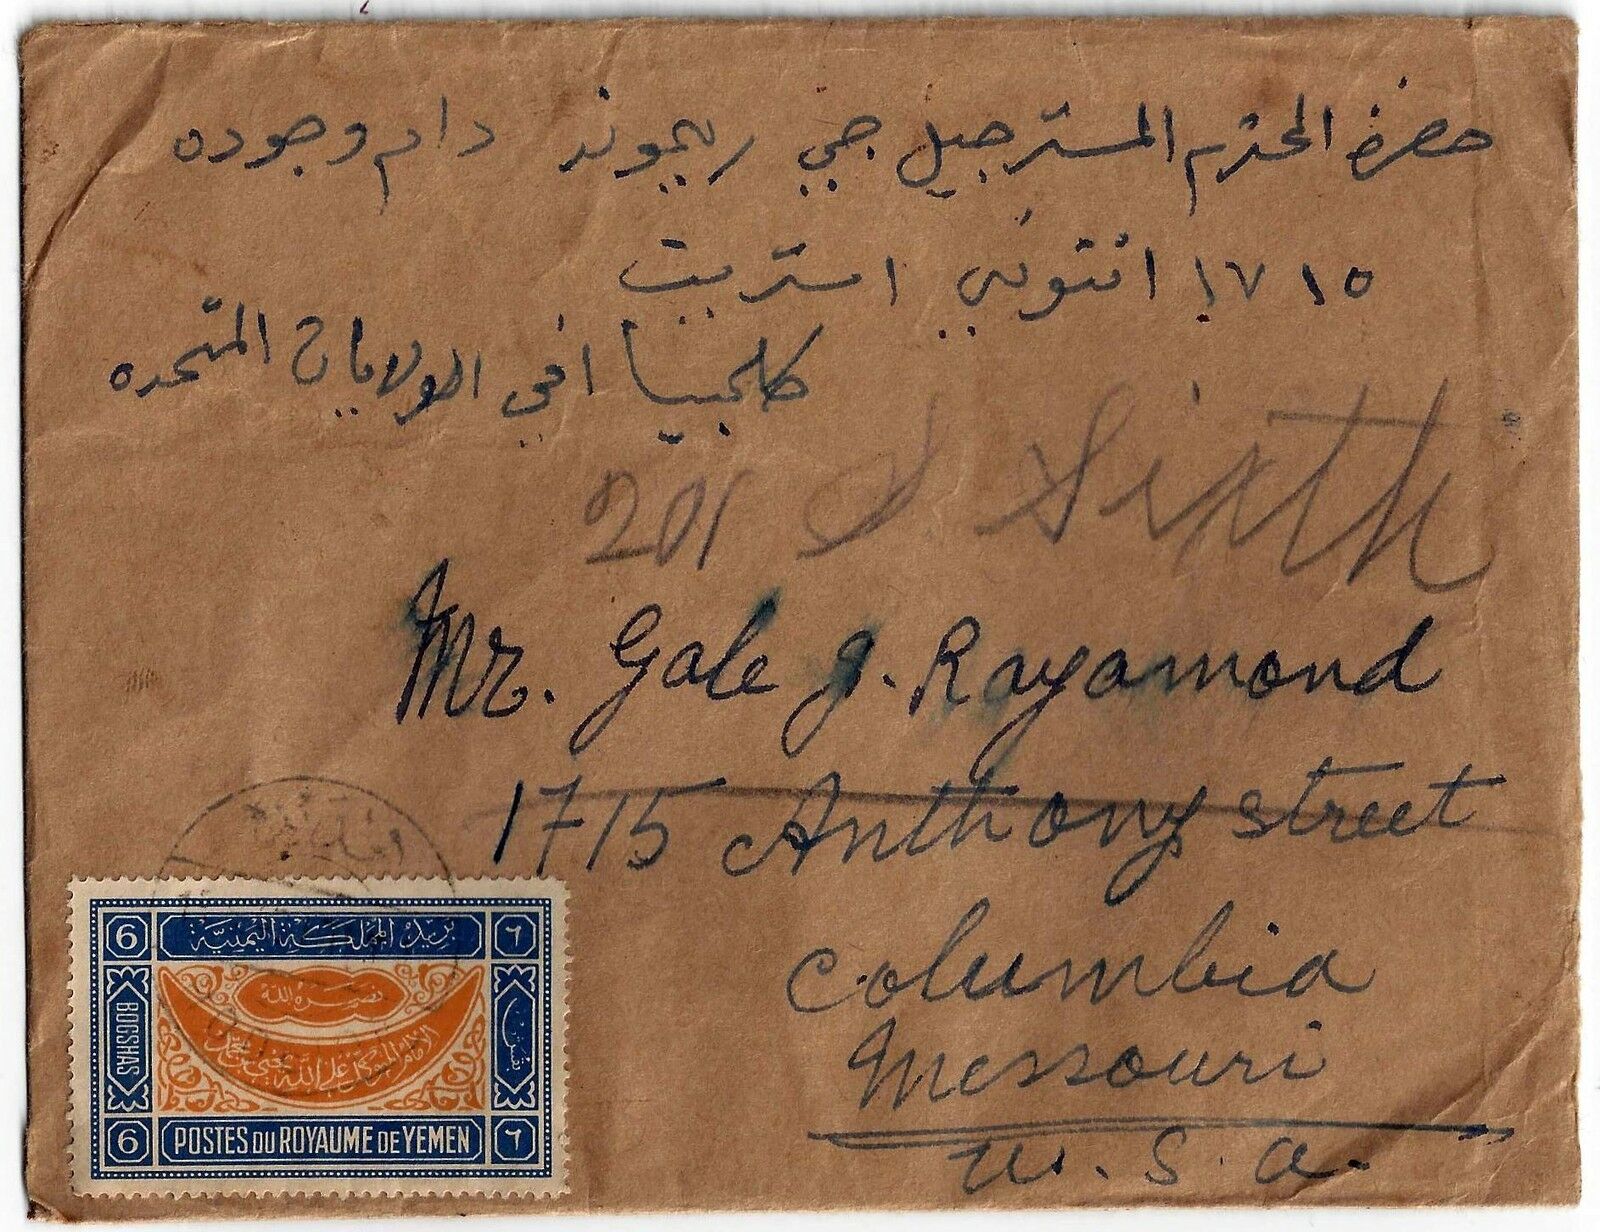 حضرة المحترم المستر جيل جي ريموند دام وجوده
١٧١٥ انتوني استريت
كلمبيا في الولايات المتحده
201 S. Sixth
Mr. Gale J. Rayamond
1715 Anthony street
Columbia
Messouri
U. S. A.
6 بريد المملكة اليمنية ٦
BOGSHAS
نصره الله
الامام المتوكل على الله يحيى بن محمد
بقش
6 POSTES DU ROYAUME DE YEMEN ٦